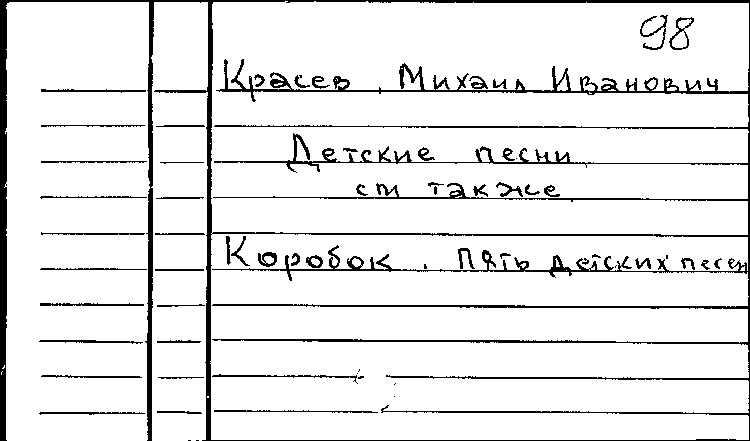 98
Красев, Михаил Иванович
Детские песни
см также
Коробок. Пять детских песен